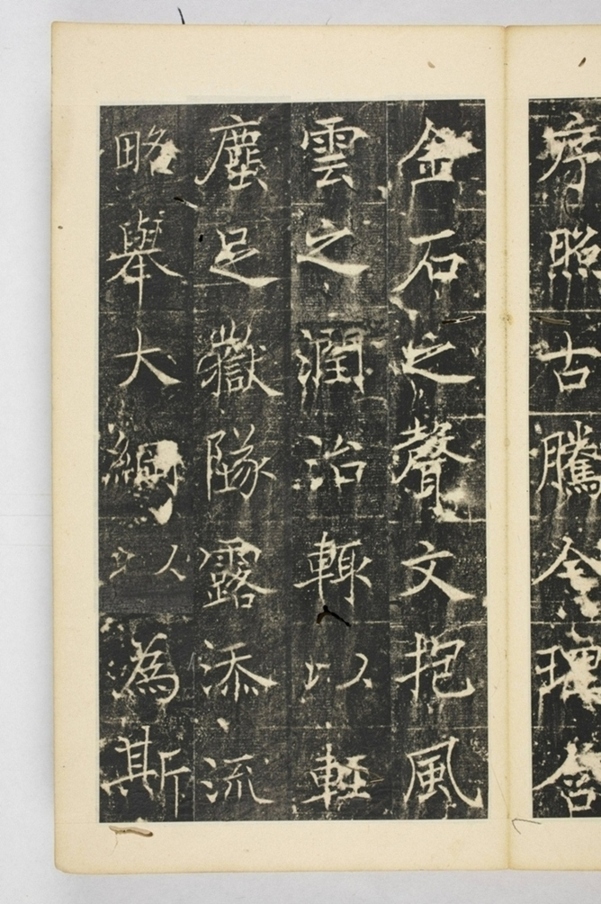 序照古騰今理含
金石之聲文抱風
雲之潤治輒以輕
塵足嶽隊露添流
略舉大綱以為斯